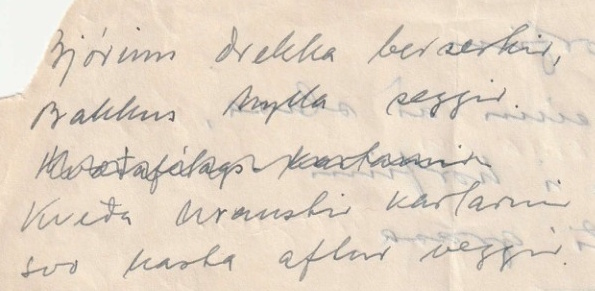 Bjórinn drekka berserkir,
Bakkus hylla seggir.
Kvæðafélags-karlarnir
Kveða hraustir karlarnir
svo kasta aftur veggir.